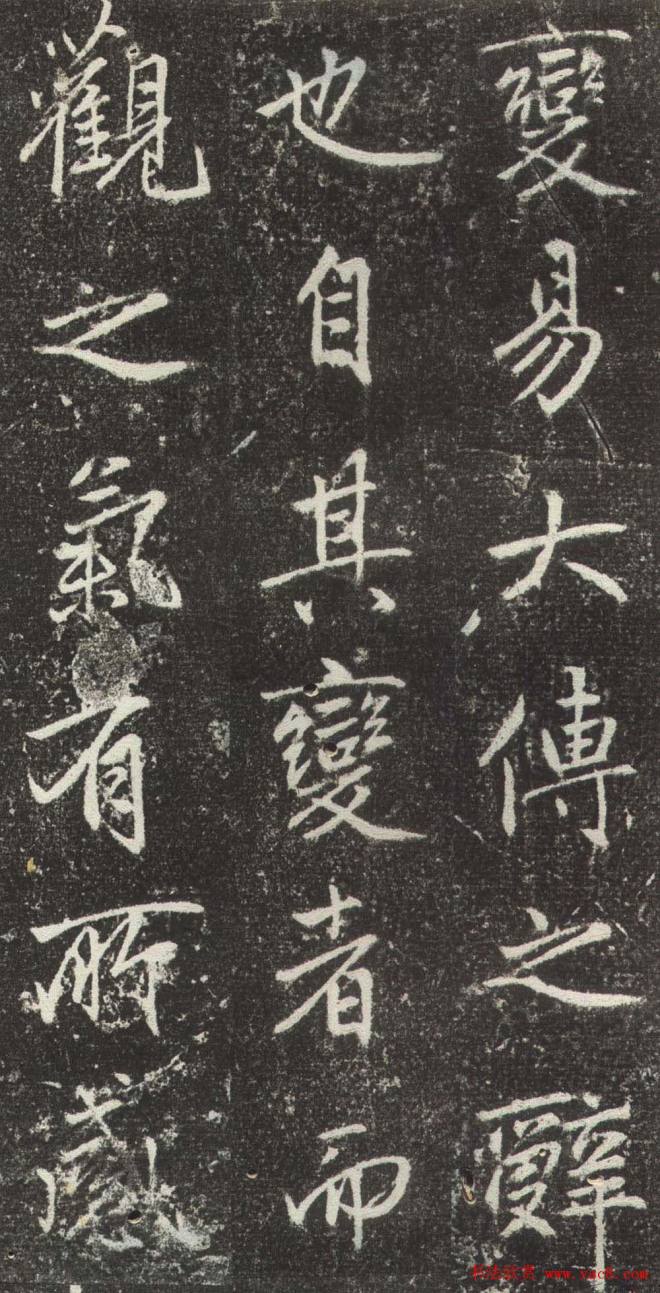 變易大傳之辭
也自其變者而
觀之氣有所感
书法欣赏 www.yac8.com